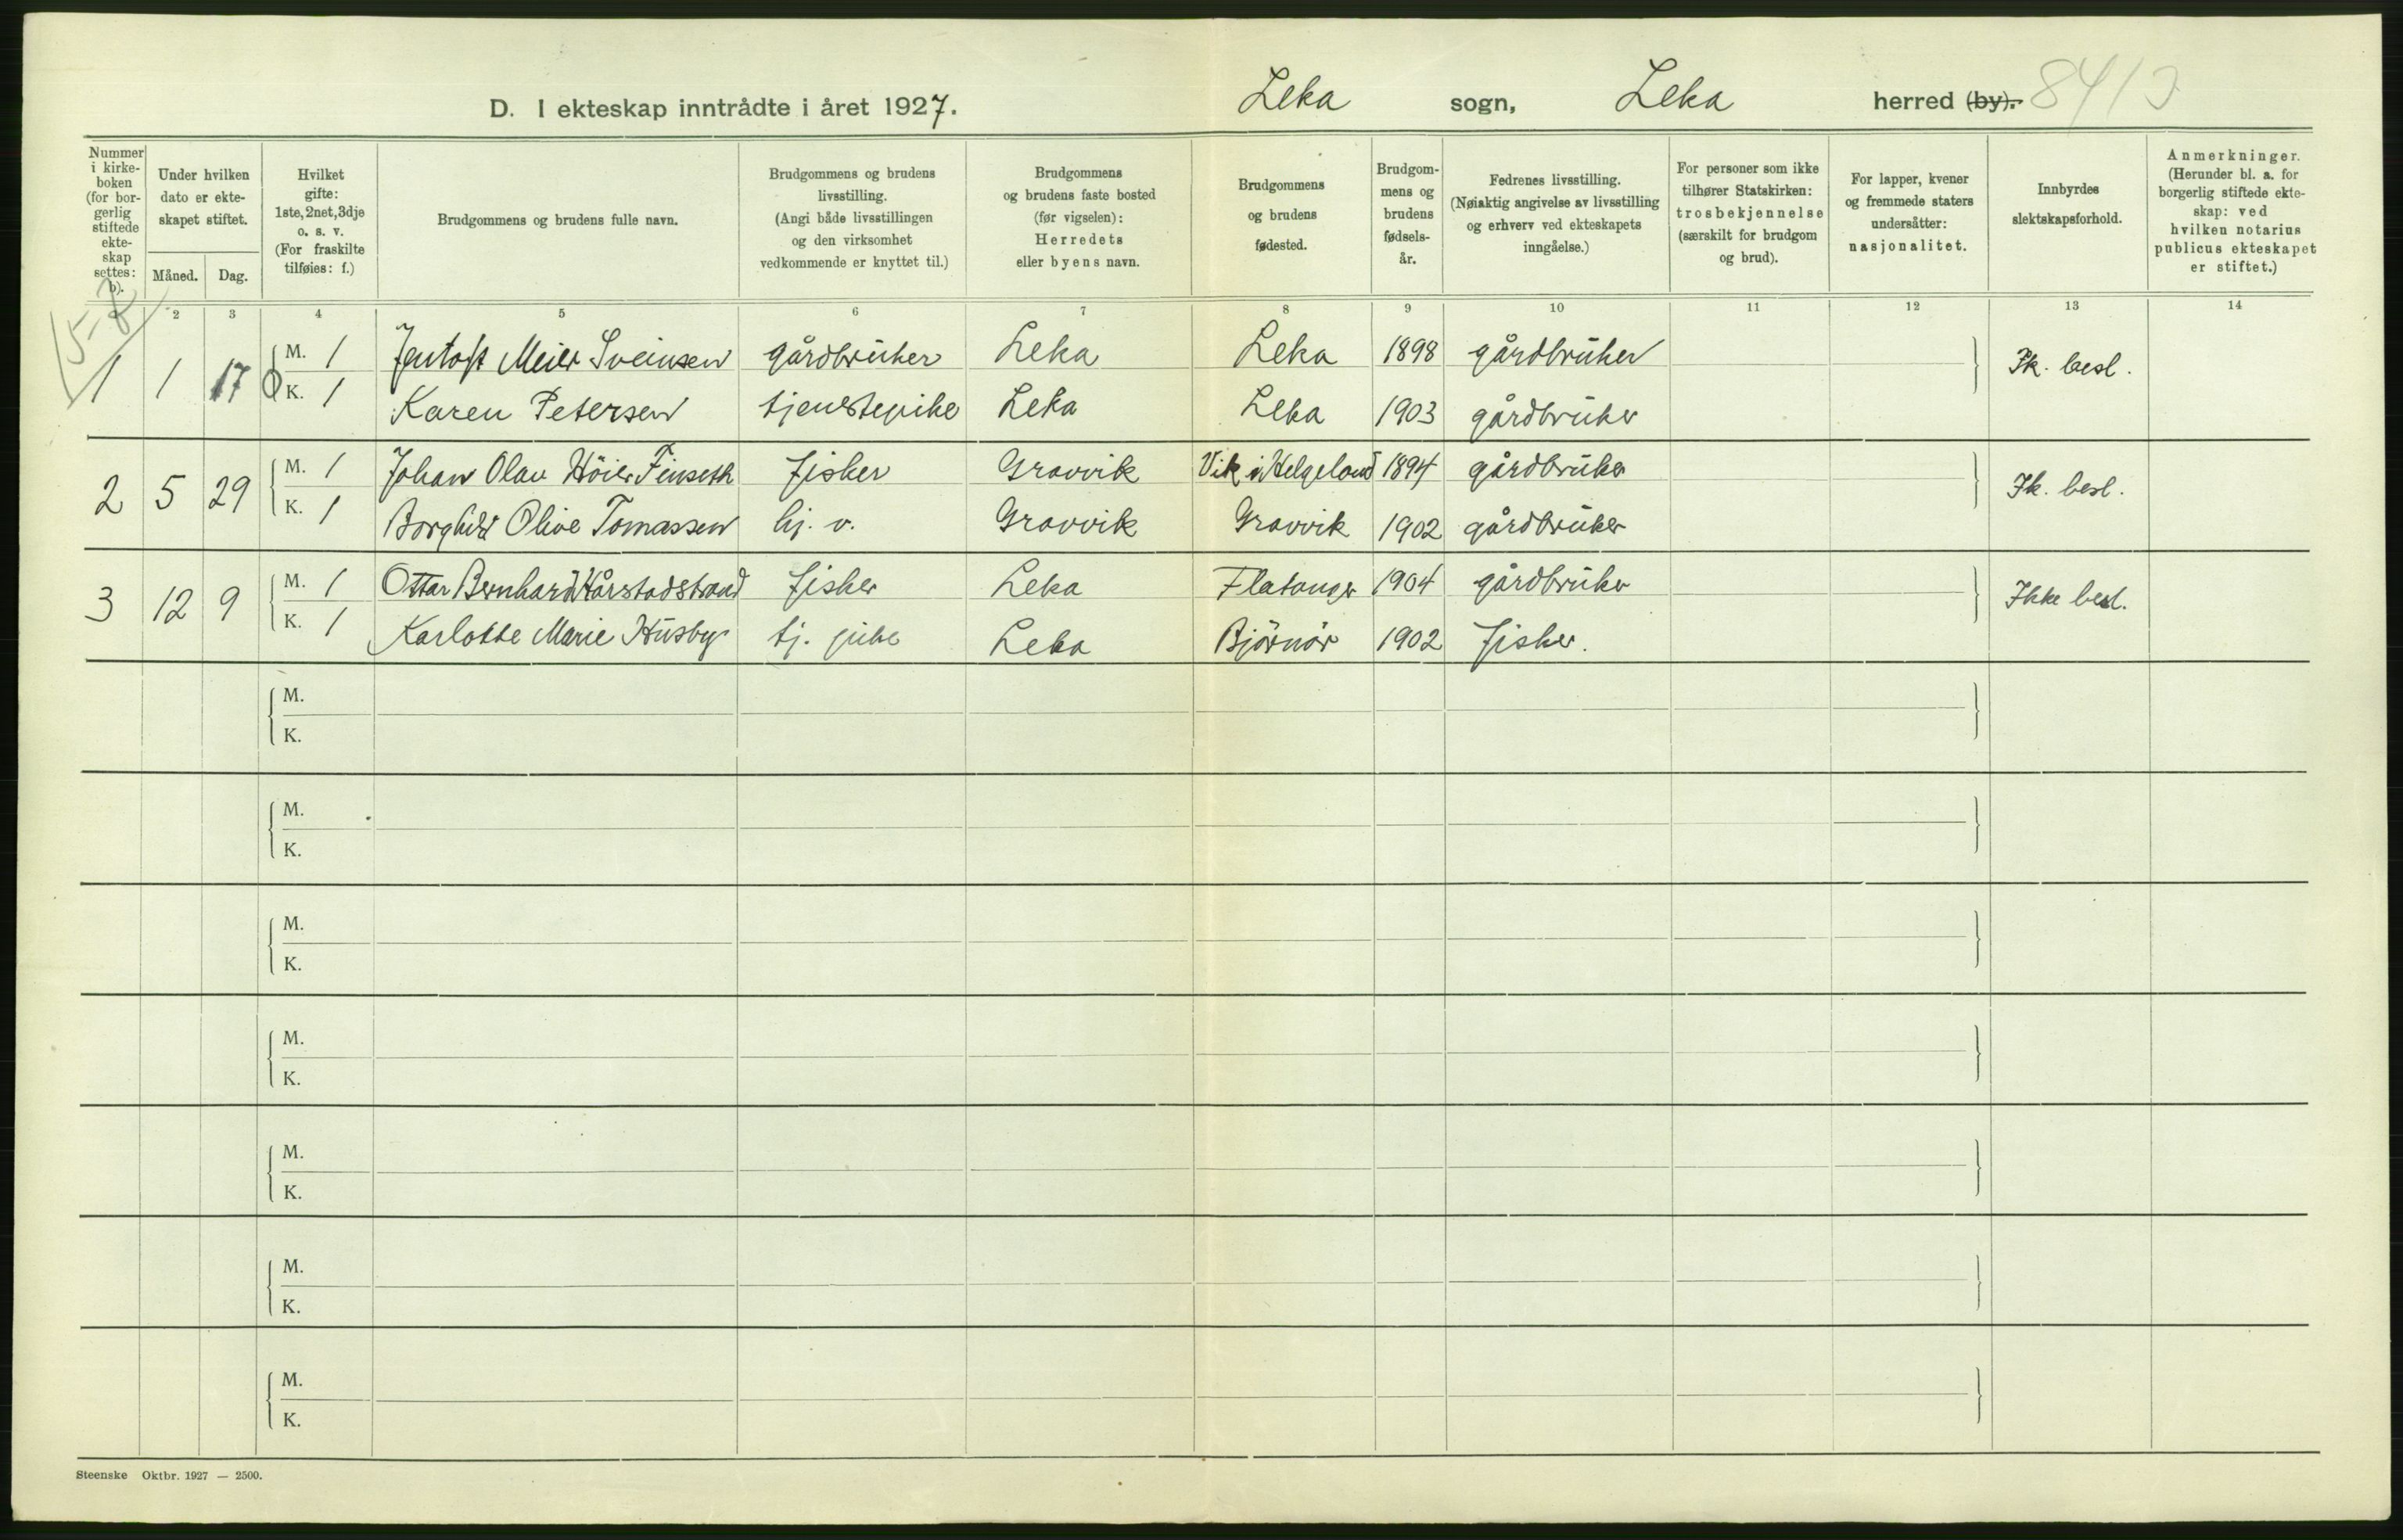 D. I ekteskap inntrådte i året 1927. Leka sogn, Leka herred (by). 8413
Nummer i kirke-boken (for bor-gerlig stiftede ekte-skap settes: b).
Under hvilken dato er ekte-skapet stiftet.
Måned. Dag.
Hvilket gifte: 1ste, 2net, 3dje o. s. v. (For fraskilte tilføies: f.)
Brudgommens og brudens fulle navn.
Brudgommens og brudens livsstilling. (Angi både livsstillingen og den virksomhet vedkommende er knyttet til.)
Brudgommens og brudens faste bosted (før vigselen): Herredets eller byens navn.
Brudgommens og brudens fødested.
Brudgom-mens og brudens fødsels-år.
Fedrenes livsstilling. (Nøiaktig angivelse av livsstilling og erhverv ved ekteskapets inngåelse.)
For personer som ikke tilhører Statskirken: trosbekjennelse (særskilt for brudgom og brud).
For lapper, kvener og fremmede staters undersåtter: nasjonalitet.
Innbyrdes slektskapsforhold.
Anmerkninger. (Herunder bl. a. for borgerlig stiftede ekte-skap: ved hvilken notarius publicus ekteskapet er stiftet.)
2 3 4 5 6 7 8 9 10 11 12 13 14
1 1 17 M. 1 Jentoft Meier Sveinsen gårdbrüker Leka Leka 1898 gårdbrüker Ik. besl.
K. 1 Karen Petersen tjenestepike Leka Leka 1903 gårdbrüker
2 5 29 M. 1 Johan Olav Höier Finseth fisker Gravvik Vik i Helgeland 1894 gårdbrüker Ik. besl.
K. 1 Borghild Olive Tomassen hj. v. Gravvik Gravvik 1902 gårdbrüker
3 12 9 M. 1 Ottar Bernhard Hårstadstrand fisker Leka Flatanger 1904 gårdbrüker Ikke besl.
K. 1 Karlotte Marie Hüsby tj. pike Leka Björnör 1902 fisker.
M.
K.
M.
K.
M.
K.
M.
K.
M.
K.
M.
K.
M.
K.
Steenske Oktbr. 1927 — 2500.